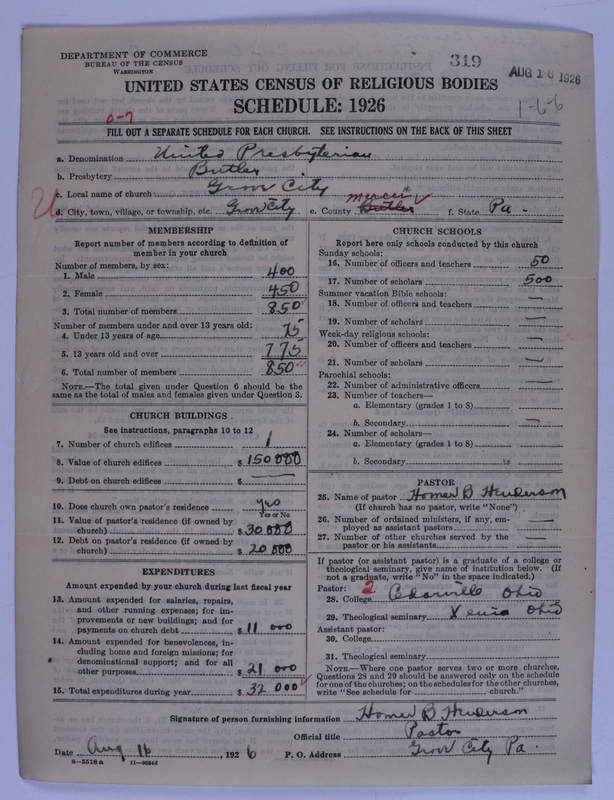 DEPARTMENT OF COMMERCE
BUREAU OF THE CENSUS
WASHINGTON
319
AUG 16 1926
UNITED STATES CENSUS OF RELIGIOUS BODIES
SCHEDULE: 1926
1-6-6
0-7
FILL OUT A SEPARATE SCHEDULE FOR EACH CHURCH. SEE INSTRUCTIONS ON THE BACK OF THIS SHEET
a. Denomination United Presbyterian
b. Presbytery Butler
c. Local name of church Grove City
d. City, town, village, or township, etc. Grove City e. County Butler Mercer f. State Pa.
MEMBERSHIP
Report number of members according to definition of
member in your church
Number of members, by sex:
1. Male 400
2. Female 450
3. Total number of members 850
Number of members under and over 13 years old:
4. Under 13 years of age 75
5. 13 years old and over 775
6. Total number of members 850
NOTE.—The total given under Question 6 should be the
same as the total of males and females given under Question 3.
CHURCH BUILDINGS
See instructions, paragraphs 10 to 12
7. Number of church edifices 1
8. Value of church edifices $ 150000
9. Debt on church edifices $ —
10. Does church own pastor's residence yes
Yes or No
11. Value of pastor's residence (if owned by
church) $ 30000
12. Debt on pastor's residence (if owned by
church) $ 20000
EXPENDITURES
Amount expended by your church during last fiscal year
13. Amount expended for salaries, repairs,
and other running expenses; for im-
provements or new buildings; and for
payments on church debt $ 11 000
14. Amount expended for benevolences, in-
cluding home and foreign missions; for
denominational support; and for all
other purposes $ 21 000
15. Total expenditures during year $ 32 000
CHURCH SCHOOLS
Report here only schools conducted by this church
Sunday schools:
16. Number of officers and teachers 50
17. Number of scholars 500
Summer vacation Bible schools:
18. Number of officers and teachers —
19. Number of scholars —
Week-day religious schools:
20. Number of officers and teachers —
21. Number of scholars —
Parochial schools:
22. Number of administrative officers —
23. Number of teachers—
a. Elementary (grades 1 to 8)
b. Secondary —
24. Number of scholars—
a. Elementary (grades 1 to 8)
b. Secondary
PASTOR
25. Name of pastor Homer B Henderson
(If church has no pastor, write "None")
26. Number of ordained ministers, if any, em-
ployed as assistant pastors
27. Number of other churches served by the
pastor or his assistants
If pastor (or assistant pastor) is a graduate of a college or
theological seminary, give name of institution below. (If
not a graduate, write "No" in the space indicated.)
Pastor: 2
28. College Cedarville Ohio
29. Theological seminary Xenia Ohio
Assistant pastor:
30. College
31. Theological seminary
NOTE.—Where one pastor serves two or more churches,
Questions 28 and 29 should be answered only on the schedule
for one of the churches; on the schedules for the other churches,
write "See schedule for church."
Signature of person furnishing information Homer B Henderson
Official title Pastor
Date Aug 16, 1926 P. O. Address Grove City Pa.
8—5518 a